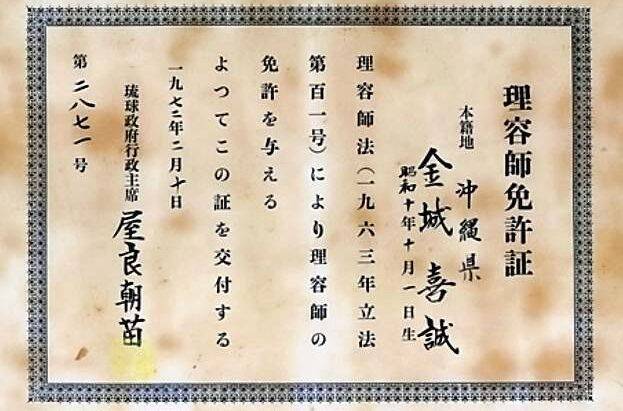 理容師免許証
本籍地 沖縄県
金城喜誠
昭和十年十月一日生
理容師法(一九六三年立法
第百一号)により理容師の
免許を与える
よつてこの証を交付する
一九七二年二月十日
琉球政府行政主席 屋良朝苗
第二八七一号